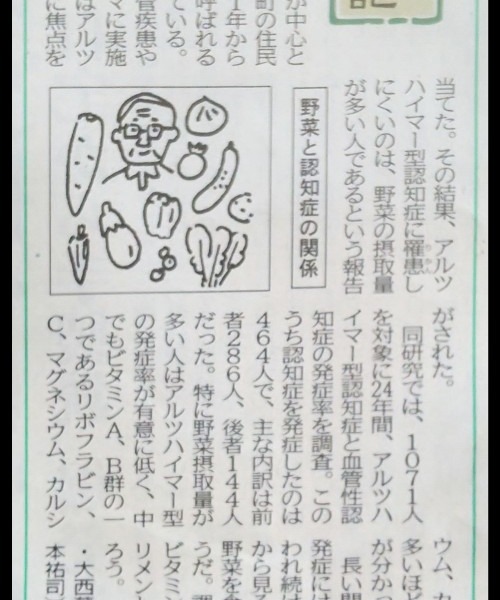 が中心と
町の住民
1年から
呼ばれる
ている。
管疾患や
マに実施
はアルツ
に焦点を
当てた。その結果、アルツ
ハイマー型認知症に罹患し
にくいのは、野菜の摂取量
が多い人であるという報告
野菜と認知症の関係
がされた。
同研究では、1071人
を対象に24年間、アルツハ
イマー型認知症と血管性認
知症の発症率を調査。この
うち認知症を発症したのは
464人で、主な内訳は前
者286人、後者144人
だった。特に野菜摂取量が
多い人はアルツハイマー型
の発症率が有意に低く、中
でもビタミンA、B群の一
つであるリボフラビン、
C、マグネシウム、カルシ
ウム、カ
多いほど
が分かっ
長い間
発症には
われ続け
から見る
野菜を
うだ。
ビタミン
リメント
ろう。
・大西
本祐司